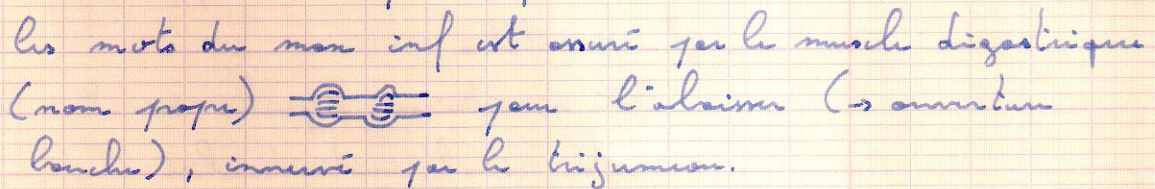 les mots du max inf est assuré par le muscle digastrique
(nom propre) pour l'abaisser (→ ouverture
bouche), innervé par le trijumeau.